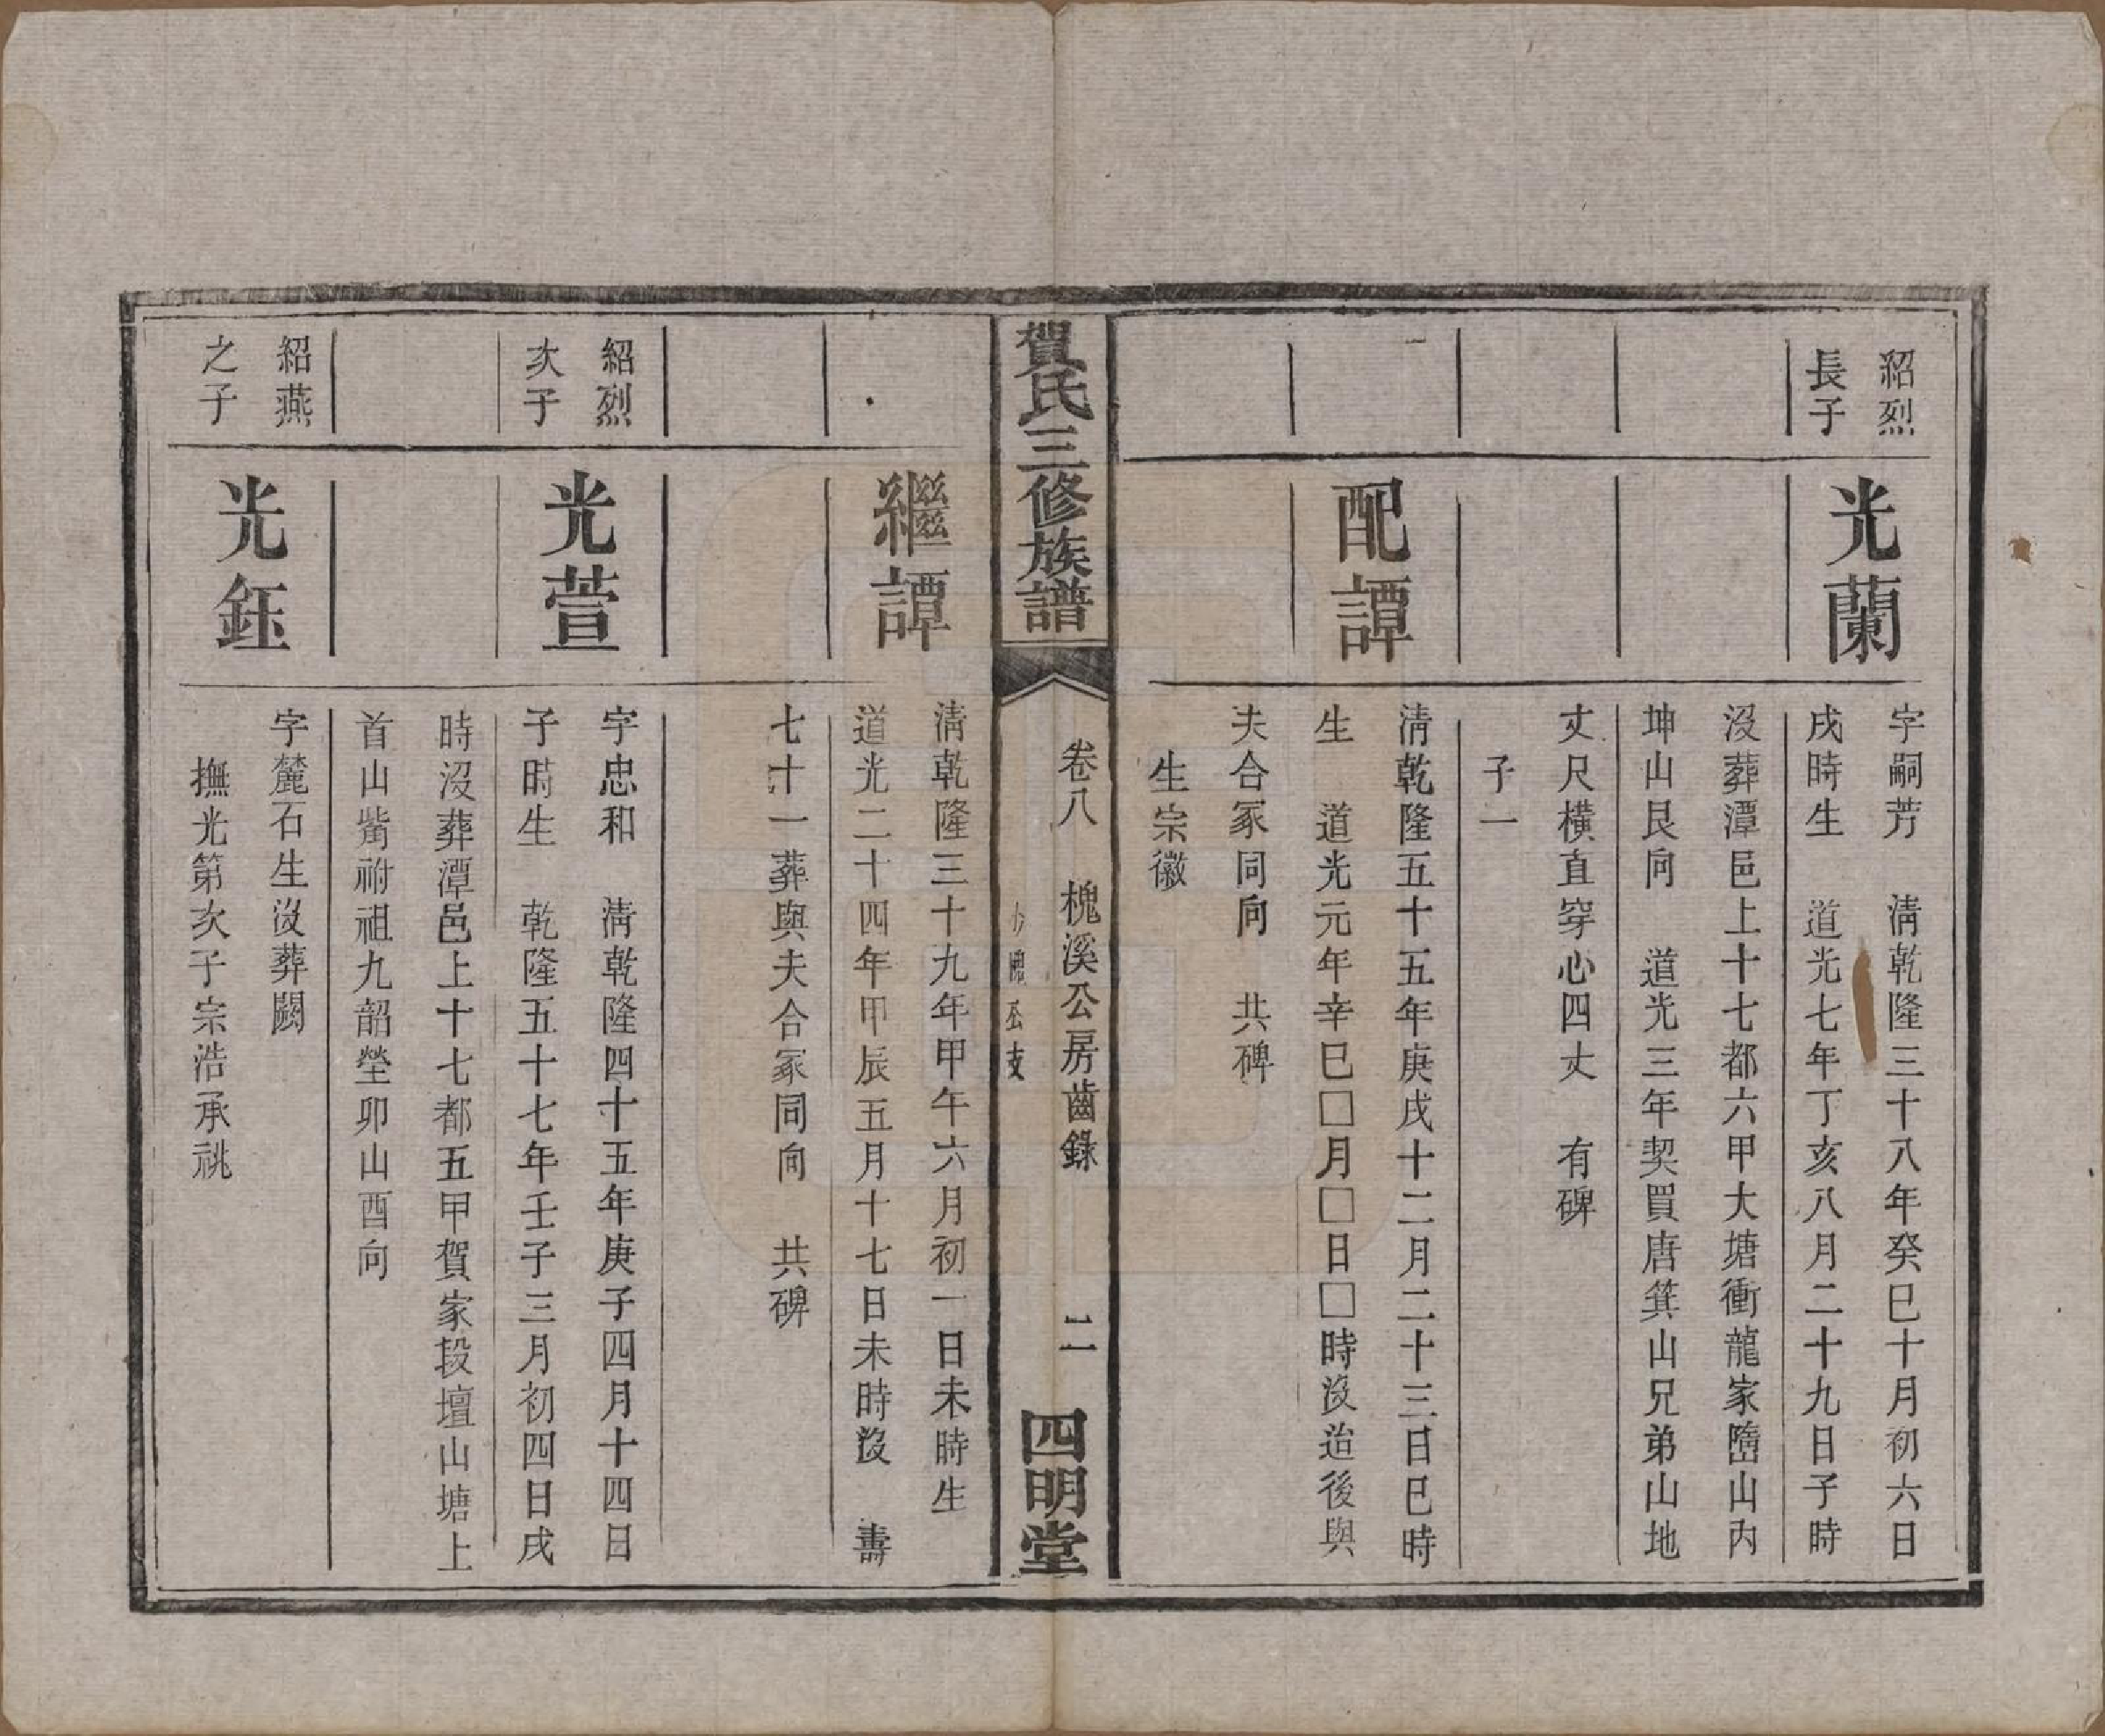 紹烈
長子
光蘭
字嗣芳　清乾隆三十八年癸巳十月初六日
戌時生　道光七年丁亥八月二十九日子時
沒葬潭邑上十七都六甲大塘衝龍家山內
坤山艮向　道光三年契買唐箕山兄弟山地
丈尺橫直穿心四丈　有碑
子一
配譚
清乾隆五十五年庚戌十二月二十三日巳時
生　道光元年辛巳□月□日□時沒迨後與
夫合冢同向　共碑
生宗徽
賀氏三修族譜
卷八　槐溪公房齒錄　二
公支
四明堂
繼譚
清乾隆三十九年甲午六月初一日未時生
道光二十四年甲辰五月十七日未時沒　壽
七十一葬與夫合冢同向　共碑
紹烈
次子
光萱
字忠和　清乾隆四十五年庚子四月十四日
子時生　乾隆五十七年壬子三月初四日戌
時沒葬潭邑上十七都五甲賀家段壇山塘上
首山嘴祔祖九韶塋卯山酉向
紹燕
之子
光鈺
字麓石生沒葬闕
撫光第次子宗浩承祧